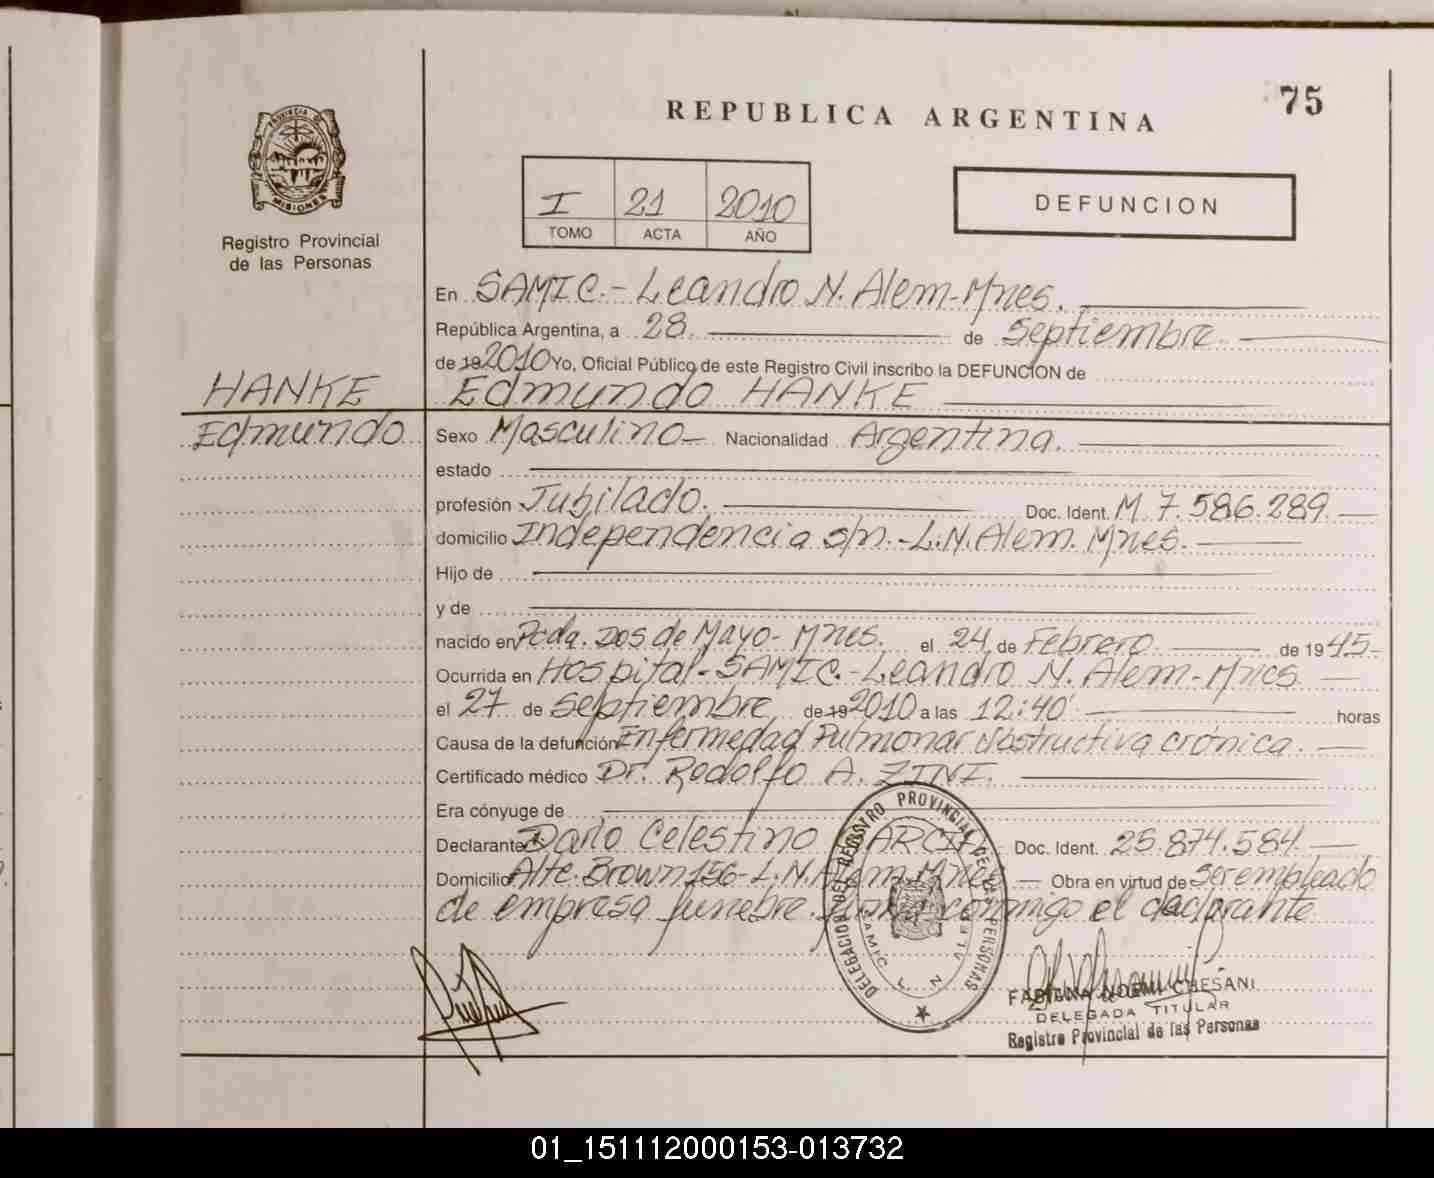 75
REPUBLICA ARGENTINA
PROVINCIA DE
MISIONES
Registro Provincial
de las Personas
I 21 2010
TOMO ACTA AÑO
DEFUNCION
En SAMIC.- Leandro N. Alem-Mnes.
República Argentina, a 28. de Septiembre
de 19 2010 Yo, Oficial Público de este Registro Civil inscribo la DEFUNCION de
HANKE Edmundo HANKE
Edmundo Sexo Masculino Nacionalidad Argentina.
estado
profesión Jubilado. Doc. Ident. M 7.586.289
domicilio Independencia s/n.-L.N.Alem. Mnes.
Hijo de
y de
nacido en Pcda. Dos de Mayo- Mnes. el 24 de Febrero de 1945-
Ocurrida en Hospital-SAMIC.-Leandro N. Alem-Mnes
el 27 de Septiembre de 19 2010 a las 12:40' horas
Causa de la defunción Enfermedad Pulmonar obstructiva crónica.
Certificado médico Dr. Rodolfo A. ZINI.
Era cónyuge de
Declarante Darío Celestino Doc. Ident. 25.874.584
Domicilio Alte. Brown 156-L.N.Alem. Mnes Obra en virtud de Ser empleado
de empresa funebre. firma conmigo el declarante
DELEGACION DEL REGISTRO PROVINCIAL DE LAS PERSONAS
SAMIC L. N ALEM
FABIANA NOEMI CHESANI
DELEGADA TITULAR
Registro Provincial de las Personas
01_151112000153-013732